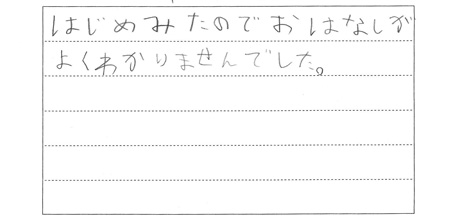 はじめみたのでおはなしが
よくわかりませんでした。